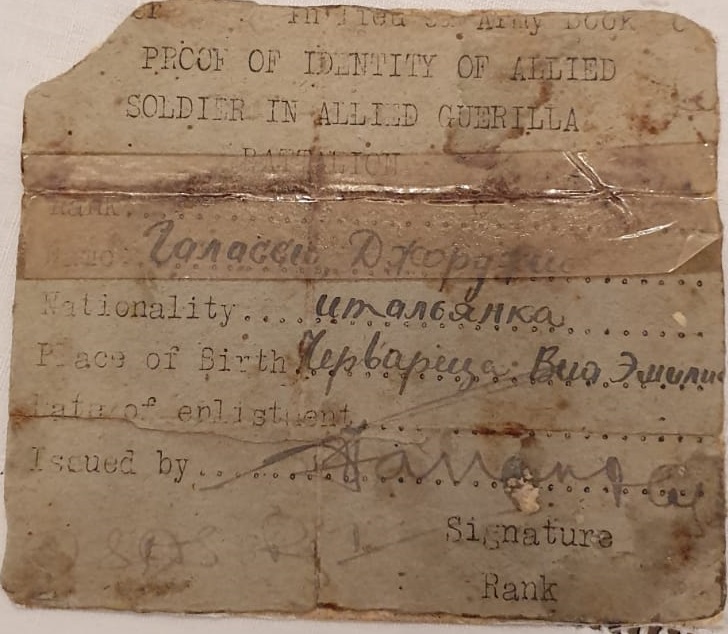 Army Book
PROOF OF IDENTITY OF ALLIED
SOLDIER IN ALLIED GUERILLA
BATTALION
Rank
Name Галасси Джорджио
Nationality.... итальянка
Place of Birth Червареца Виа Эмилия
Date of enlistment
Issued by
Signature
Rank